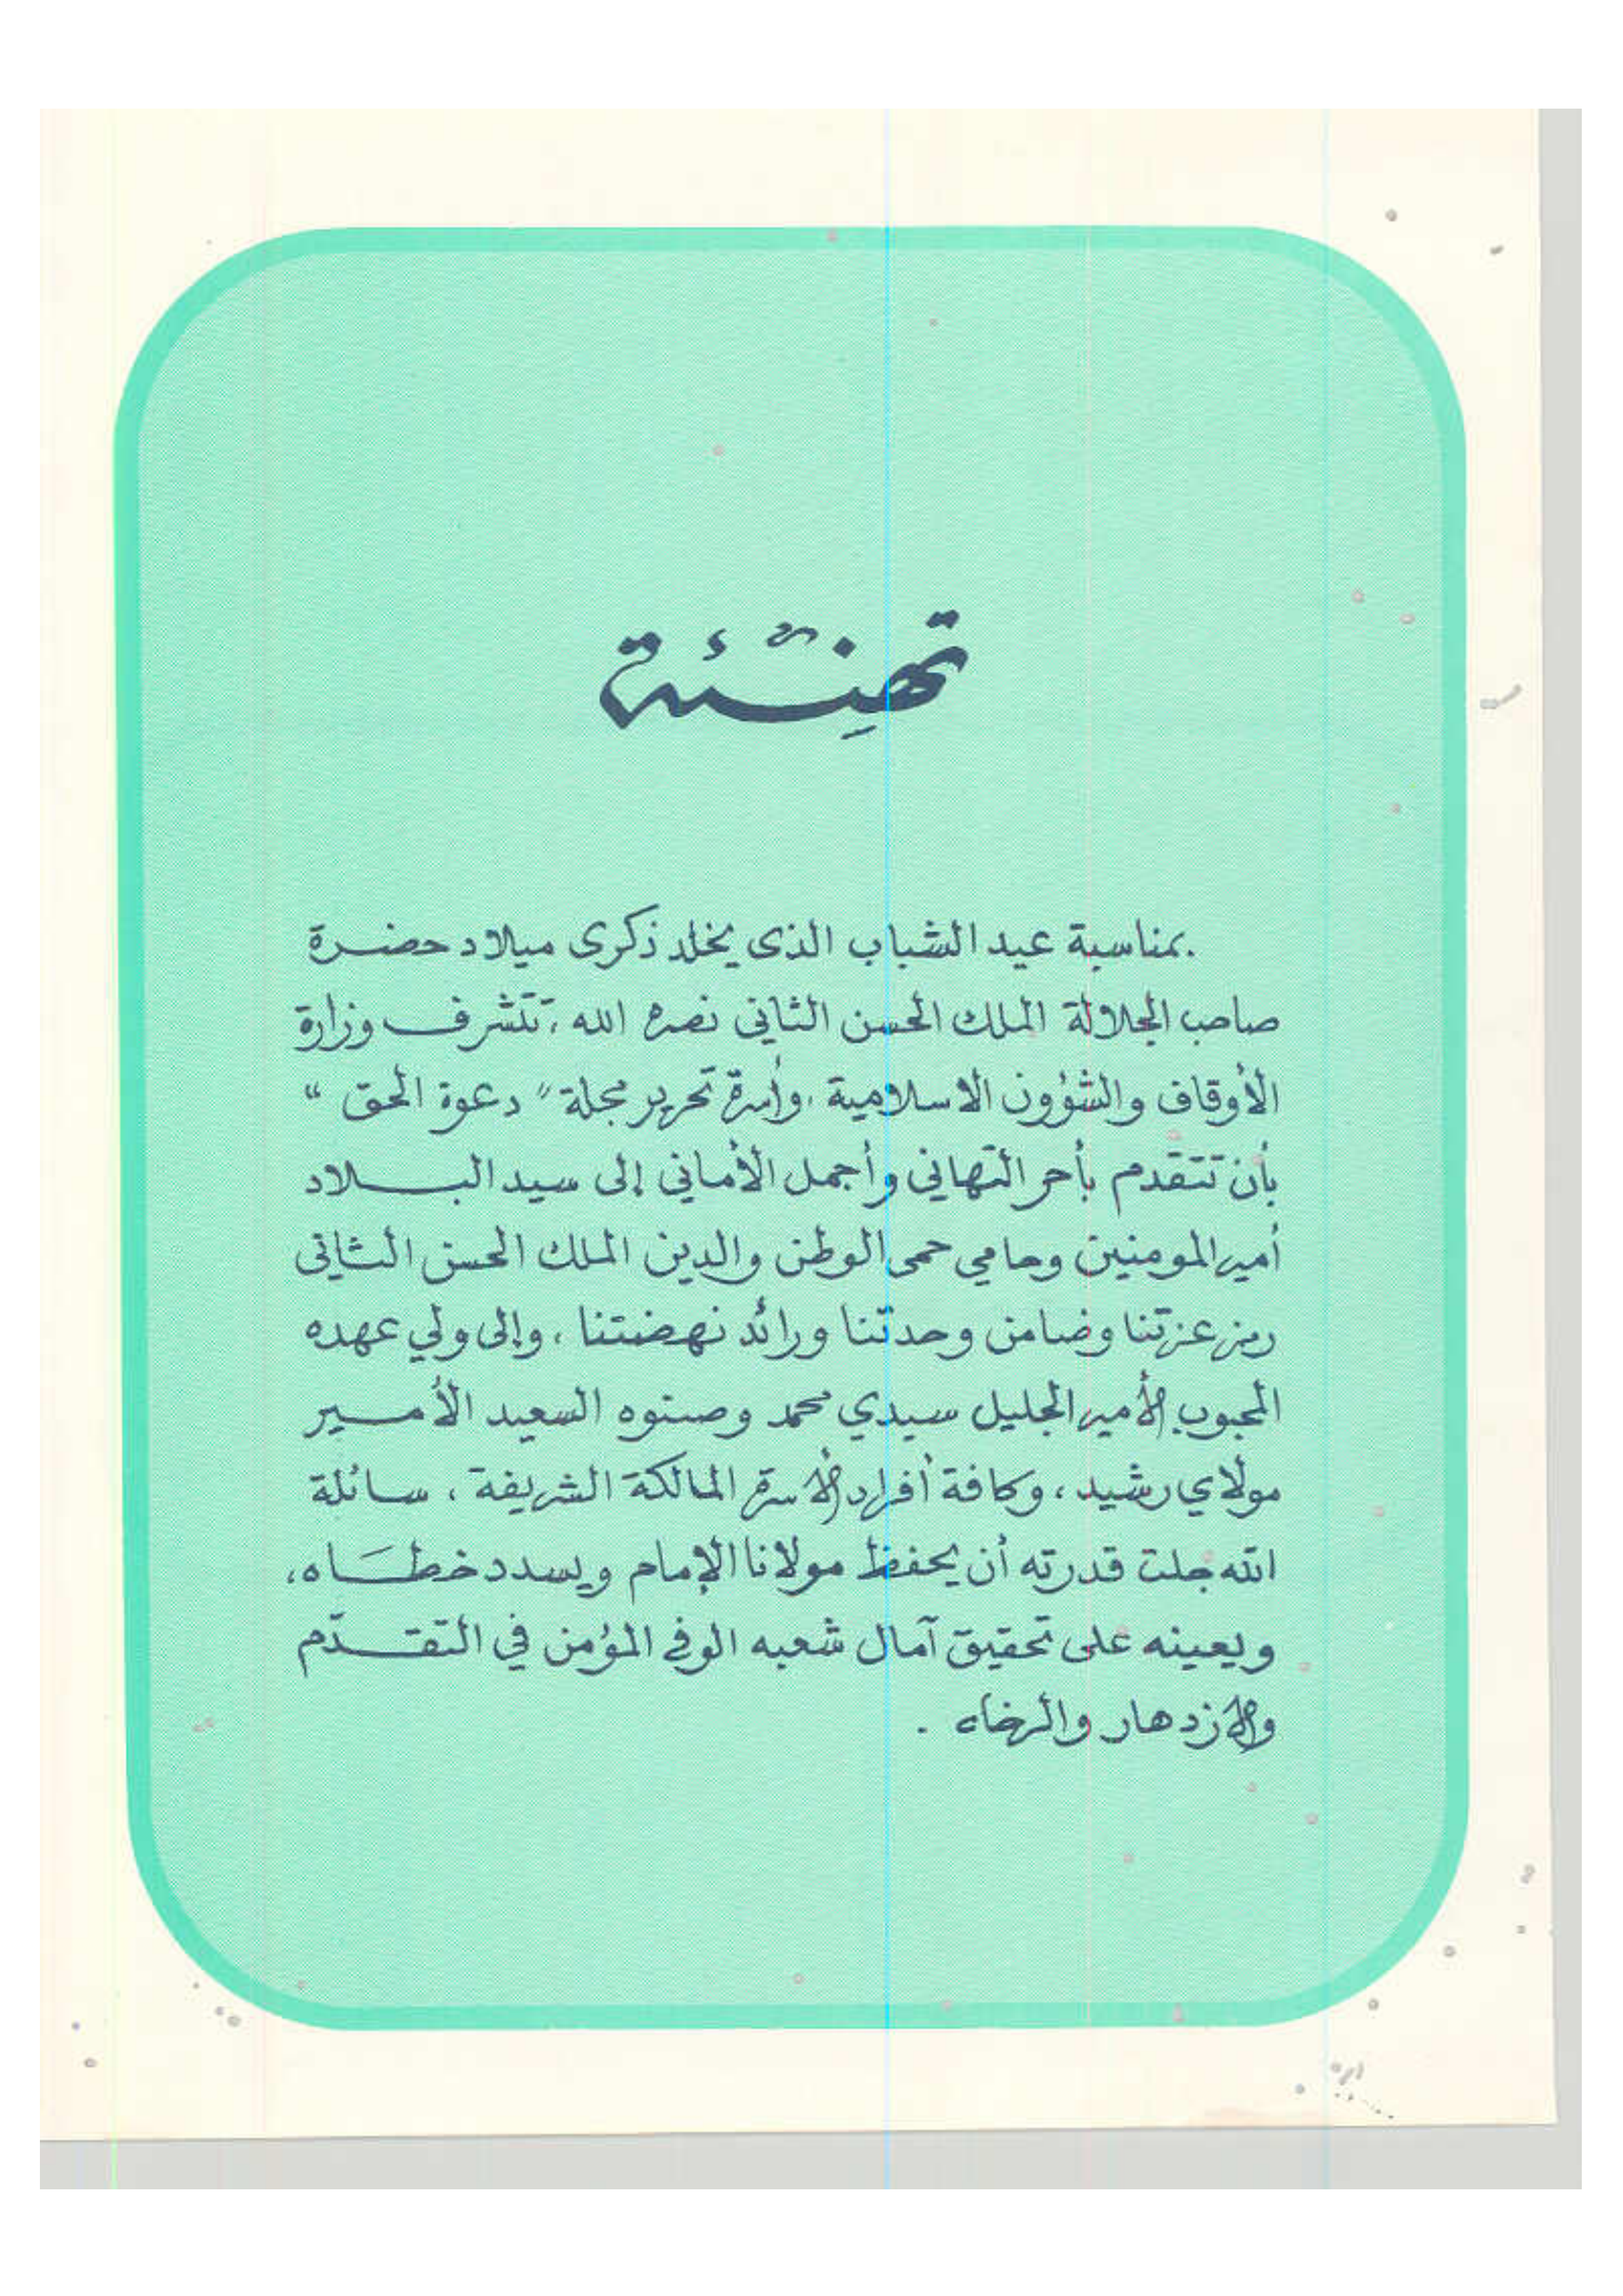 تهنئة
بمناسبة عيد الشباب الذى يخلد ذكرى ميلاد حضرة
صاحب الجلالة الملك الحسن الثانى نصره الله ، تتشرف وزارة
الأوقاف والشؤون الاسلامية ، وأسرة تحرير مجلة " دعوة الحق "
بأن تتقدم بأحر التهاني وأجمل الأماني إلى سيد البلاد
أمير المومنين وحامي حمى الوطن والدين الملك الحسن الثانى
رمز عزتنا وضامن وحدتنا ورائد نهضتنا ، وإلى ولي عهده
المحبوب الأمير الجليل سيدي محمد وصنوه السعيد الأمير
مولاي رشيد ، وكافة أفراد الأسرة المالكة الشريفة ، سائلة
الله جلت قدرته أن يحفظ مولانا الإمام ويسدد خطَاه ،
ويعينه على تحقيق آمال شعبه الوفي المؤمن في التقدّم
والازدهار والرخاء .